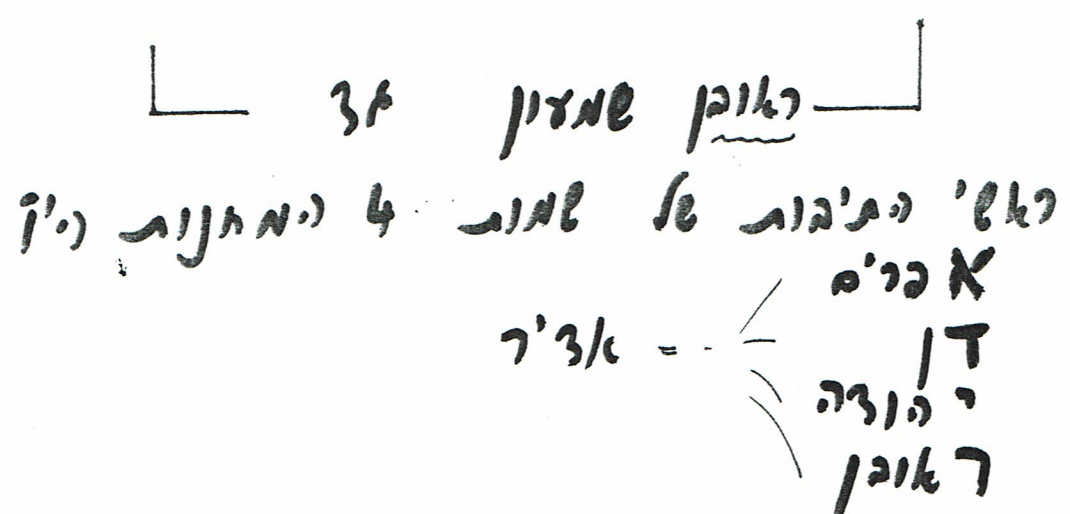 ראובן שמעון גד
ראשי התיבות של שמות 4 המחנות היו
אפרים
דן = אדיר
יהודה
ראובן